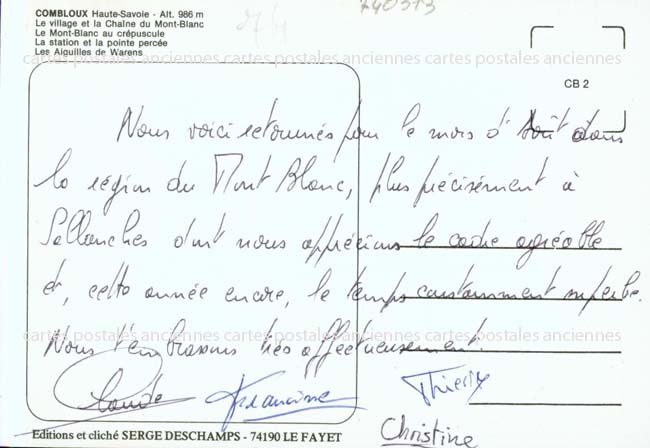 COMBLOUX Haute-Savoie - Alt. 986 m
Le village et la Chaîne du Mont-Blanc
Le Mont-Blanc au crépuscule
La station et la pointe percée
Les Aiguilles de Warens
740313
74
CB 2
cartes postales anciennes cartes postales anciennes cartes postales anciennes
Nous voici retournés pour le mois d'Août dans
la région du Mont Blanc, plus précisément à
Sallanches dont nous apprécions le cadre agréable
et, cette année encore, le temps constamment superbe.
cartes postales anciennes cartes postales anciennes cartes postales anciennes
Nous t'embrassons très affectueusement.
Claude Francine Thierry
Christine
Editions et cliché SERGE DESCHAMPS - 74190 LE FAYET